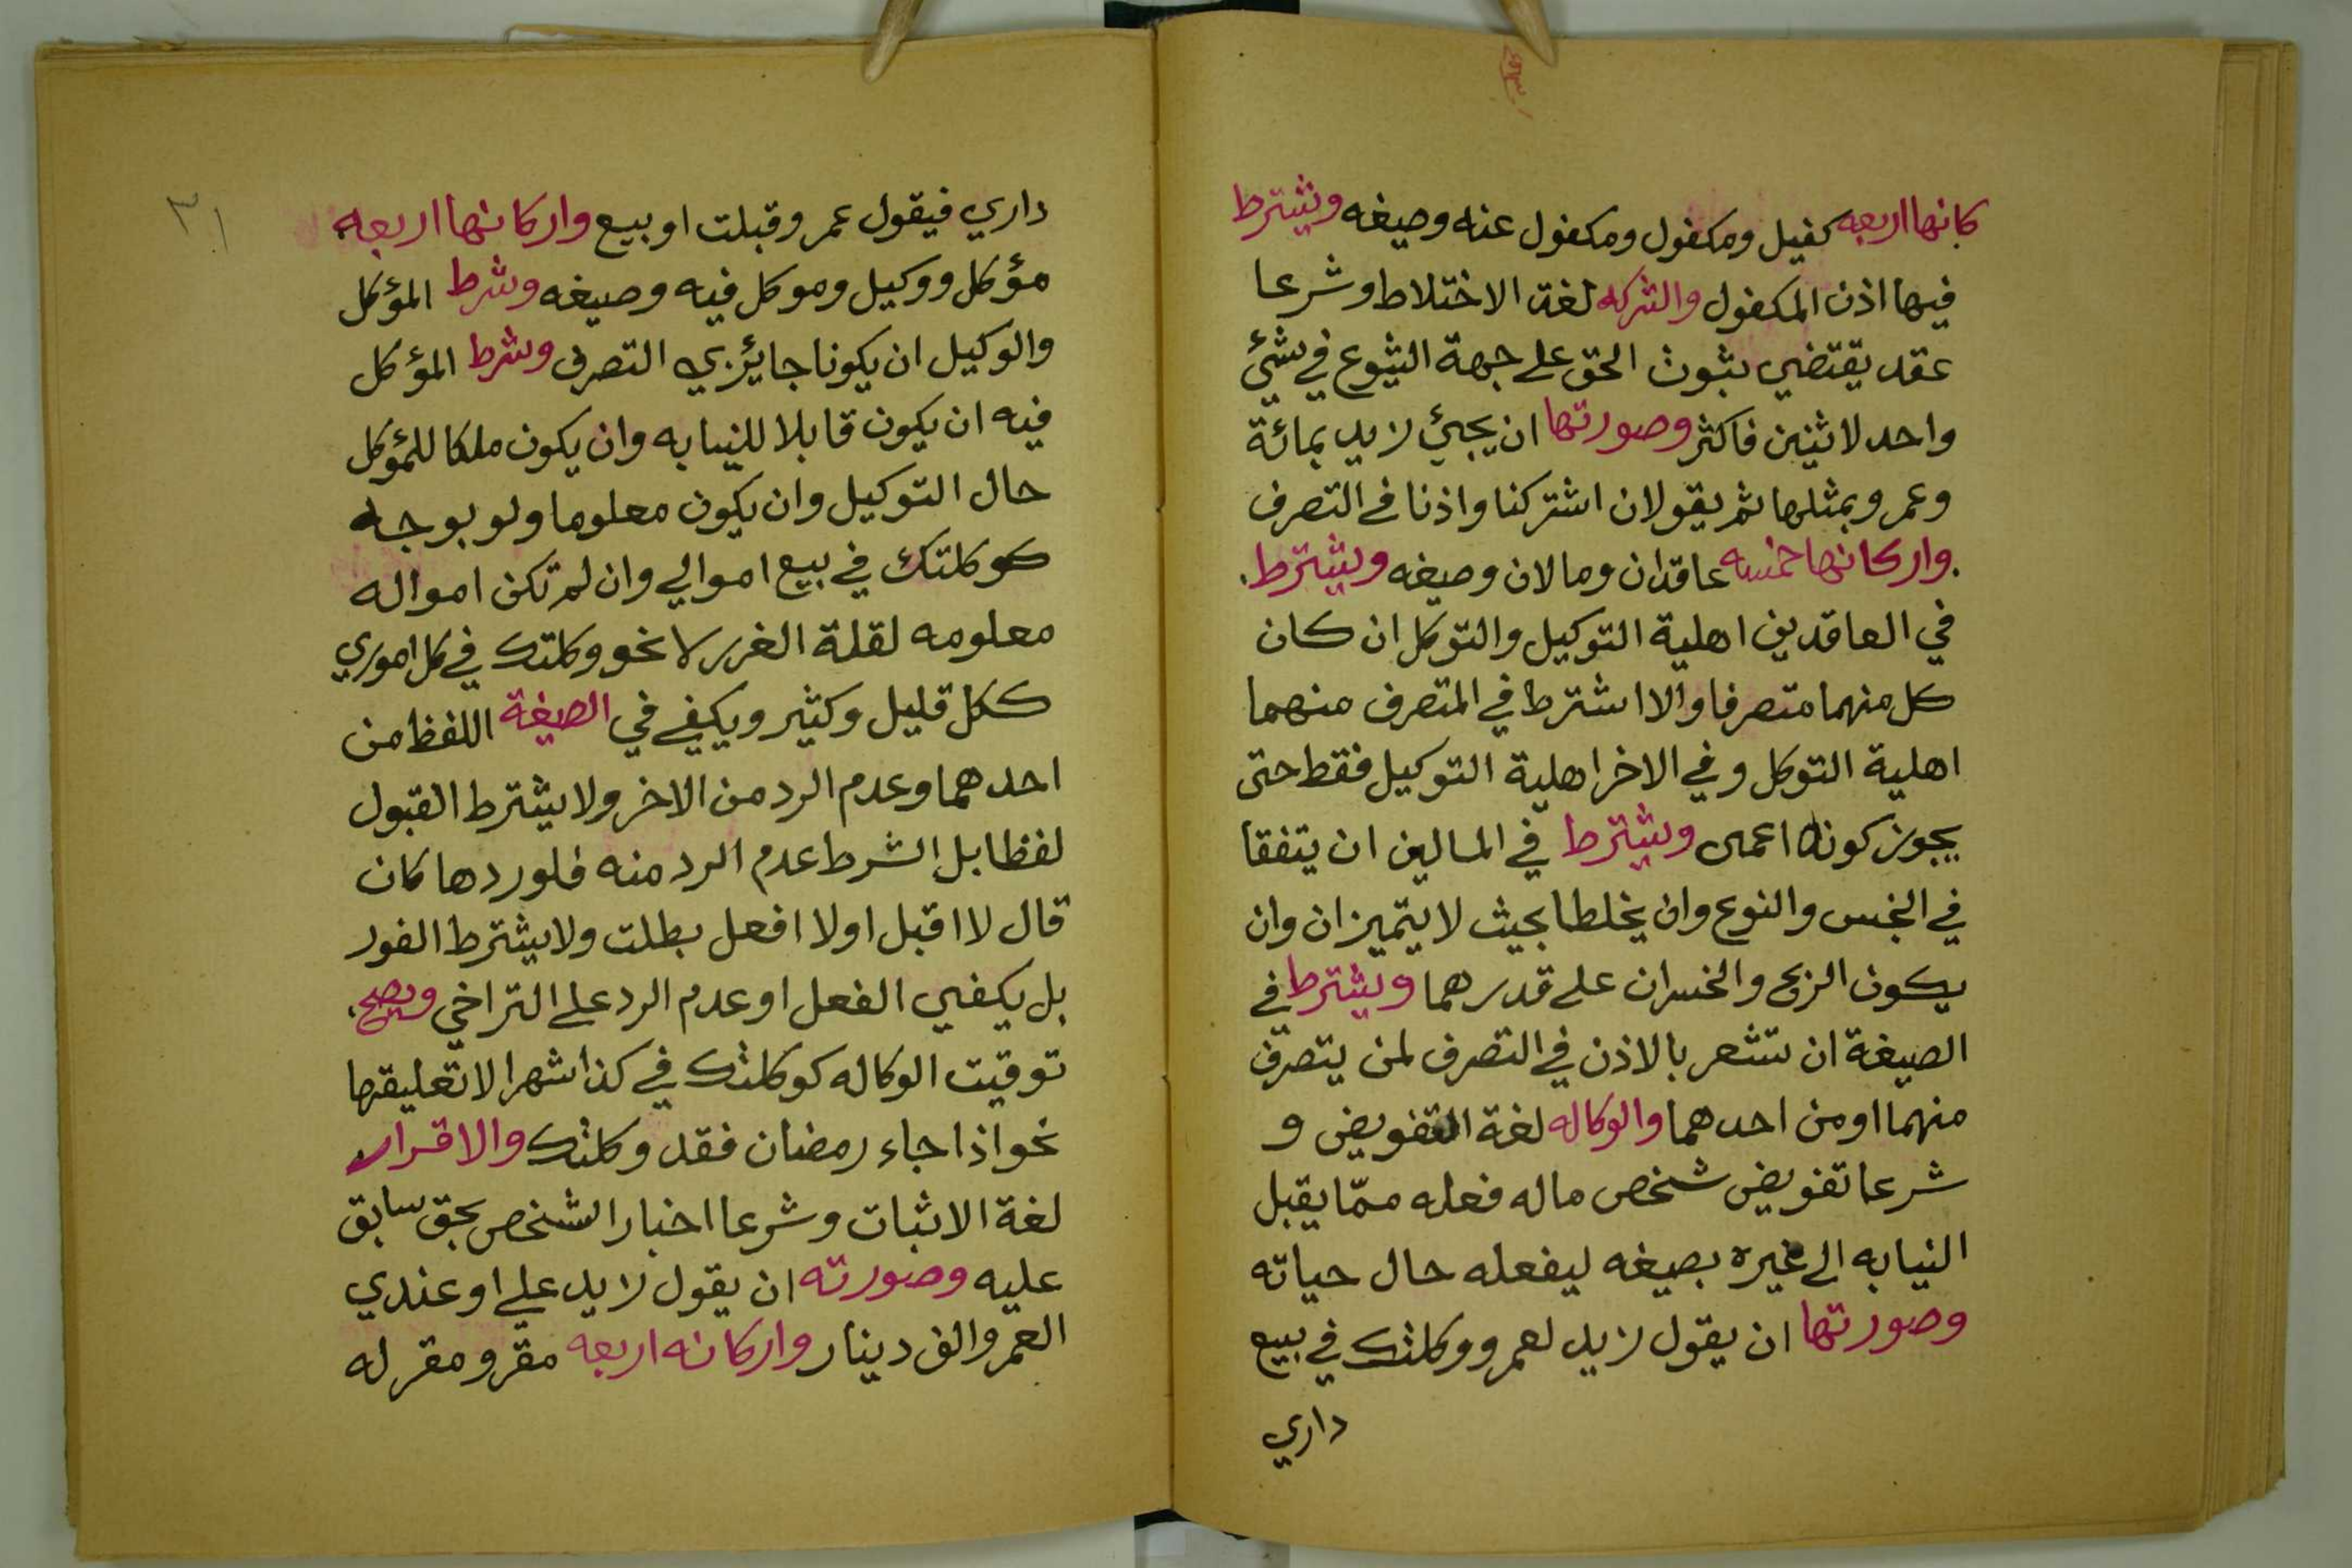 كانها اربعه كفيل ومكفول ومكفول عنه وصيغه ويشترط
فيها اذن المكفول والشركه لغة الاختلاط وشرعا
عقد يقتضي ثبوت الحق على جهة الشيوع في شئ
واحد لاثنين فاكثر وصورتها ان يجئ زيد بمائة
وعمر وبمثلها ثم يقولان اشتركنا واذنا في التصرف
واركانها خمسه عاقدان ومالان وصيغه ويشترط
في العاقدين اهلية التوكيل والتوكل ان كان
كل منهما متصرفا والا اشترط في المتصرف منهما
اهلية التوكل وفي الاخر اهلية التوكيل فقط حتى
يجوز كونه اعمى ويشترط في المالين ان يتفقا
في الجنس والنوع وان يخلطا بحيث لا يتميزان وان
يكون الربح والخسران على قدرهما ويشترط في
الصيغة ان تشعر بالاذن في التصرف لمن يتصرف
منهما او من احدهما والوكاله لغة التفويض و
شرعا تفويض شخص ماله فعله ممّا يقبل
النيابه الى غيره بصيغه ليفعله حال حياته
وصورتها ان يقول زيد لعمر ووكلتك في بيع
داري
٣١
داري فيقول عمر وقبلت او بيع واركانها اربعه
مؤكل ووكيل وموكل فيه وصيغه وشرط المؤكل
والوكيل ان يكونا جايئزي التصرف وشرط المؤكل
فيه ان يكون قابلا للنيابه وان يكون ملكا للمؤكل
حال التوكيل وان يكون معلوما ولو بوجه
كوكلتك في بيع اموالي وان لم تكن امواله
معلومه لقلة الغرر لا نحو وكلتك في كل اموري
ككل قليل وكثير ويكفي في الصيغة اللفظ من
احدهما وعدم الرد من الاخر ولا يشترط القبول
لفظا بل الشرط عدم الرد منه فلو ردها كان
قال لا اقبل اولا افعل بطلت ولا يشترط الفور
بل يكفي الفعل او عدم الرد على التراخي ويصح
توقيت الوكاله كوكلتك في كذا شهرا لا تعليقها
نحو اذا جاء رمضان فقد وكلتك والاقرار
لغة الاثبات وشرعا اخبار الشخص بحق سابق
عليه وصورته ان يقول زيد علي او عندي
العمر والف دينار واركانه اربعه مقر ومقر له